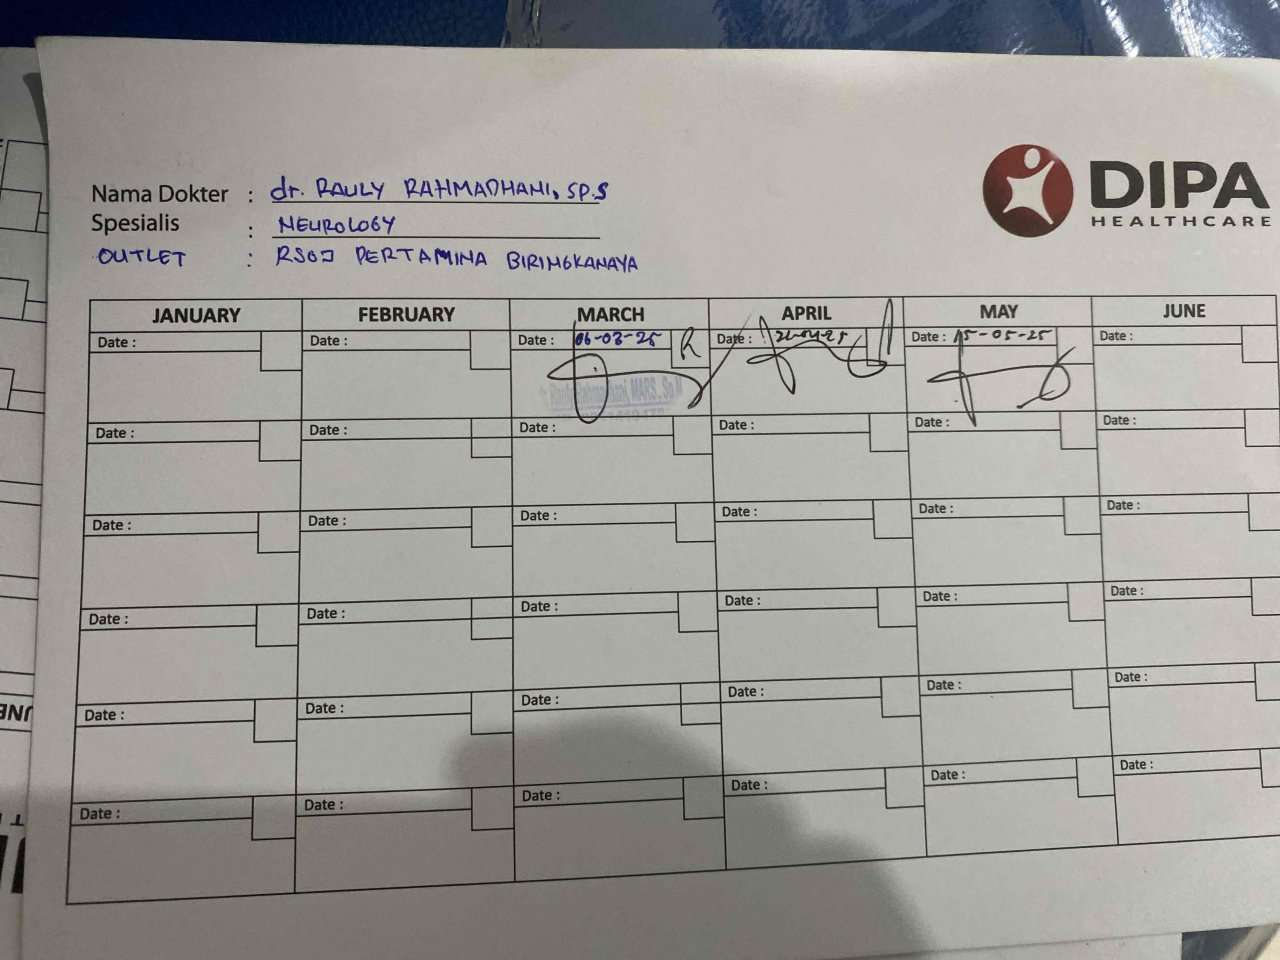 DIPA
HEALTHCARE
Nama Dokter : dr. RAULY RAHMADHANI, SP.S
Spesialis : NEUROLOGY
OUTLET : RSOJ PERTAMINA BIRINGKANAYA
JANUARY FEBRUARY MARCH APRIL MAY JUNE
Date : Date : Date : 06-03-25 R Date : -04-25 Date : 15-05-25 Date :
MARS, Sp.N
Date : Date : Date : Date : Date : Date :
Date : Date : Date : Date : Date : Date :
Date : Date : Date : Date : Date : Date :
Date : Date : Date : Date : Date : Date :
Date : Date : Date : Date : Date : Date :